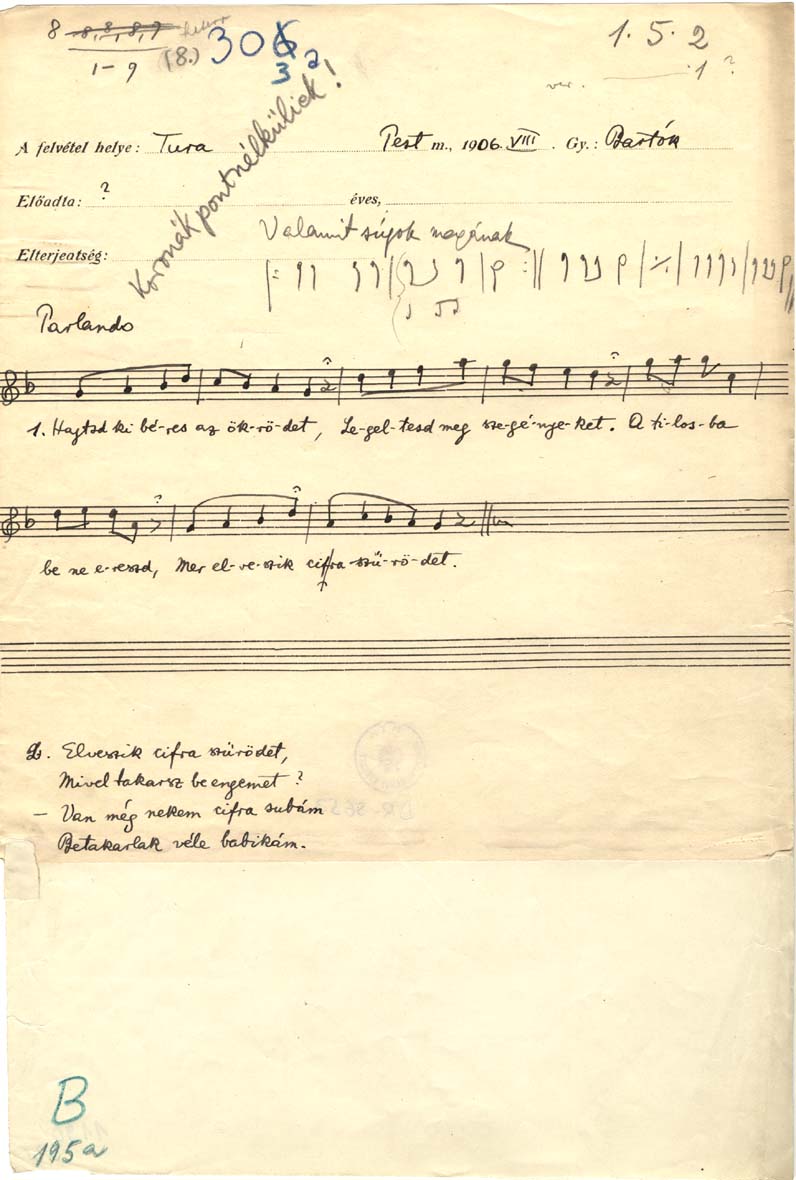 8 8, 8, 8, 9
1–9 (8.) 306
3 a
1. 5. 2
ver. 1 ?
Koronák pontnélküliek!
A felvétel helye: Tura Pest m., 1906. VIII. Gy.: Bartók
Előadta: ? éves,
Valamit súgok magának
Elterjedtség:
Parlando
1. Hajtsd ki bé-res az ök-rö-det, Le-gel-tesd meg sze-gé-nye-ket. A ti-los-ba
be ne e-reszd, Mer el-ve-szik cifra-szű-rö-det.
2. Elveszik cifra szűrödet,
Mivel takarsz be engemet?
– Van még nekem cifra subám
Betakarlak véle babikám.
B
195a